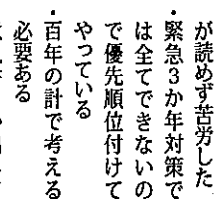 が読めず苦労した
・緊急3か年対策で
は全てできないの
で優先順位付けて
やっている
・百年の計で考える
必要ある